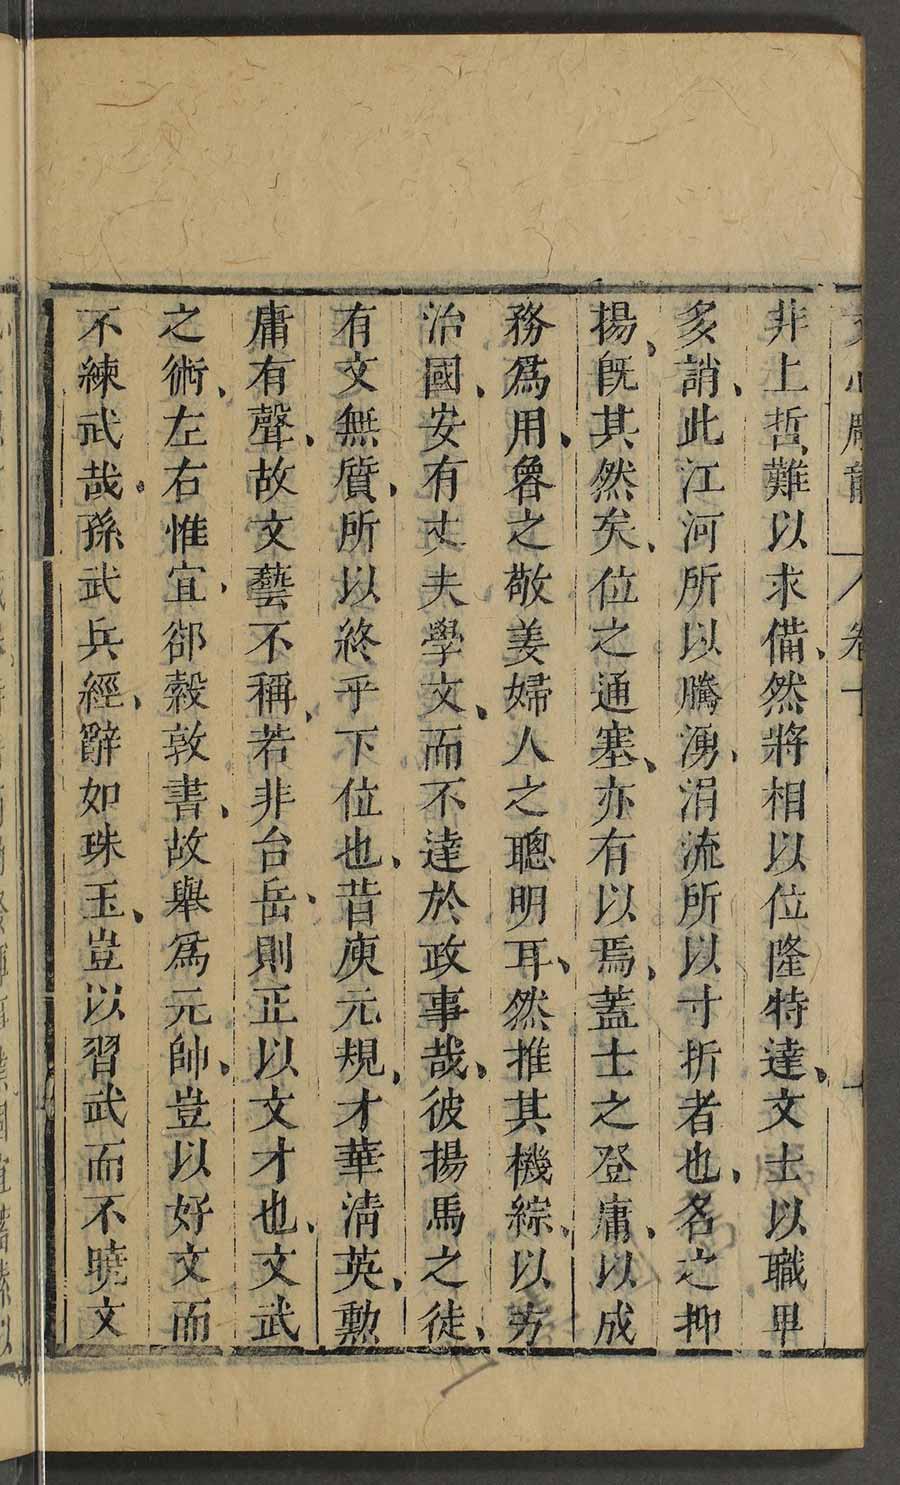 文心雕龍 卷十
非上哲、難以求備、然將相以位隆特達、文士以職卑
多誚、此江河所以騰湧、涓流所以寸折者也、名之抑
揚、旣其然矣、位之通塞、亦有以焉、蓋士之登庸、以成
務爲用、魯之敬姜婦人之聰明耳、然推其機綜、以方
治國、安有丈夫學文、而不達於政事哉、彼揚馬之徒、
有文無質、所以終乎下位也、昔庾元規、才華淸英、勲
庸有聲、故文藝不稱、若非台岳、則正以文才也、文武
之術、左右惟宜、郤縠敦書、故舉爲元帥、豈以好文而
不練武哉。孫武兵經、辭如珠玉、豈以習武而不曉文